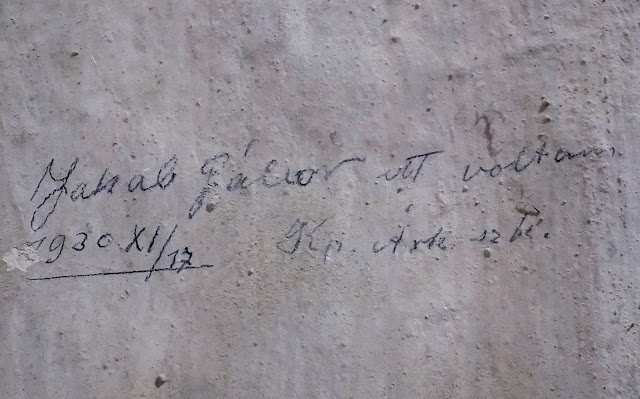 Jakab Gábor itt voltam
1930 XI/17 Kp.